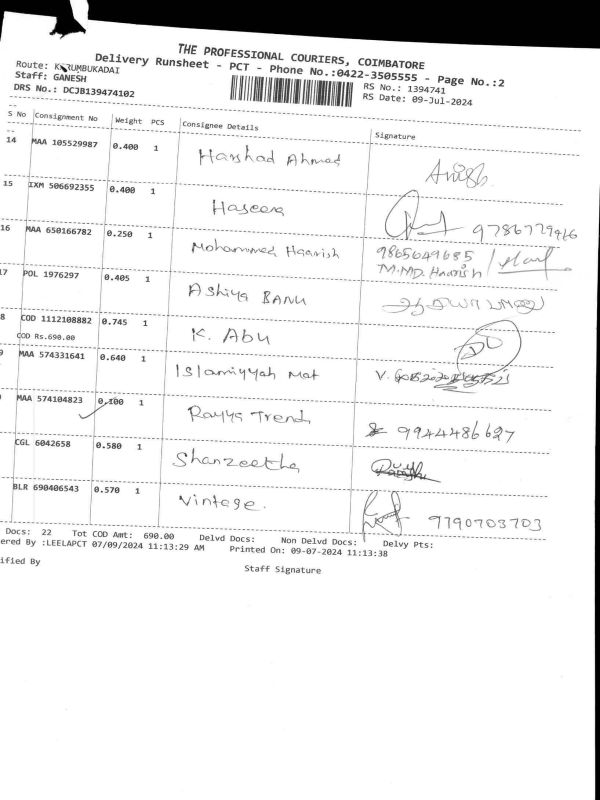 THE PROFESSIONAL COURIERS, COIMBATORE
Delivery Runsheet - PCT - Phone No.:0422-3505555 - Page No.:2
Route: KARUMBUKADAI
Staff: GANESH
DRS No.: DCJB139474102
RS No.: 1394741
RS Date: 09-Jul-2024
S No Consignment No Weight PCS Consignee Details Signature
14 MAA 105529987 0.400 1 Harshad Ahmed
15 IXM 506692355 0.400 1 Haseena
16 MAA 650166782 0.250 1 Mohammed Haarish 9865649685
M.MD. Haarish
17 POL 1976297 0.405 1 Ashiya BANU
8 COD 1112108882 0.745 1 K. Abu
COD Rs.690.00
9 MAA 574331641 0.640 1 Islamiyyah Mat
MAA 574104823 0.100 1 Rayya Trend 9944486627
CGL 6042658 0.580 1 Shanzeetha
BLR 690406543 0.570 1 Vintage. 9790703703
Docs: 22 Tot COD Amt: 690.00 Delvd Docs: Non Delvd Docs: Delvy Pts:
ered By :LEELAPCT 07/09/2024 11:13:29 AM Printed On: 09-07-2024 11:13:38
ified By Staff Signature